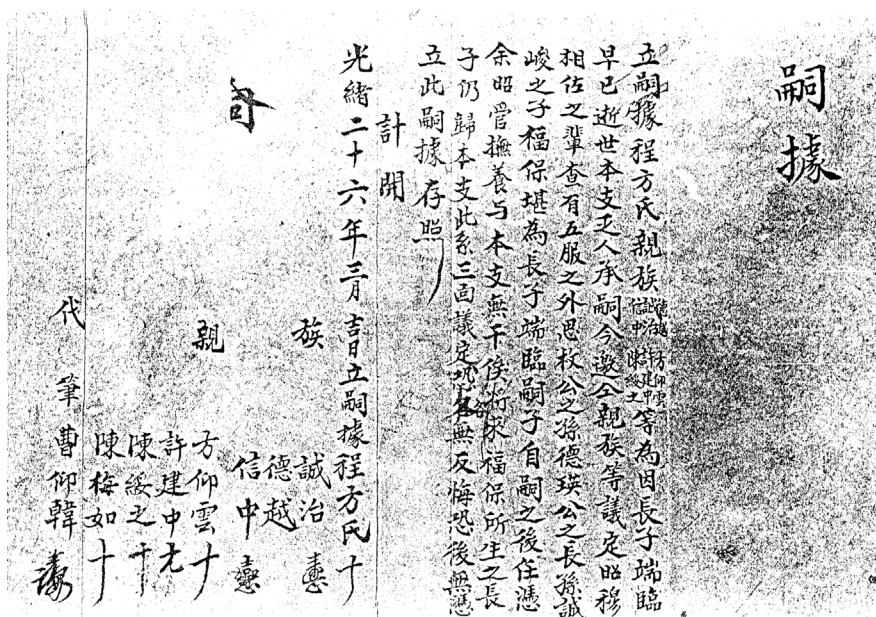 嗣據
立嗣據程方氏親族誠治信中方仰雲許建中陳綏之等為因長子端臨
早已逝世本支乏人承嗣今邀仝親族等議定昭穆
相佐之輩查有五服之外思枚公之孫德瑛公之長孫誠
峻之子福保堪為長子端臨嗣子自嗣之後任憑
余昭管撫養与本支無干俟將來福保所生之長
子仍歸本支此系三面議定各無反悔恐後無憑
立此嗣據存照
計開
光緒二十六年三月吉日立嗣據程方氏十
族 誠治
德越
信中
親 方仰雲十
許建中
陳綏之十
陳梅如十
代筆曹仰韓